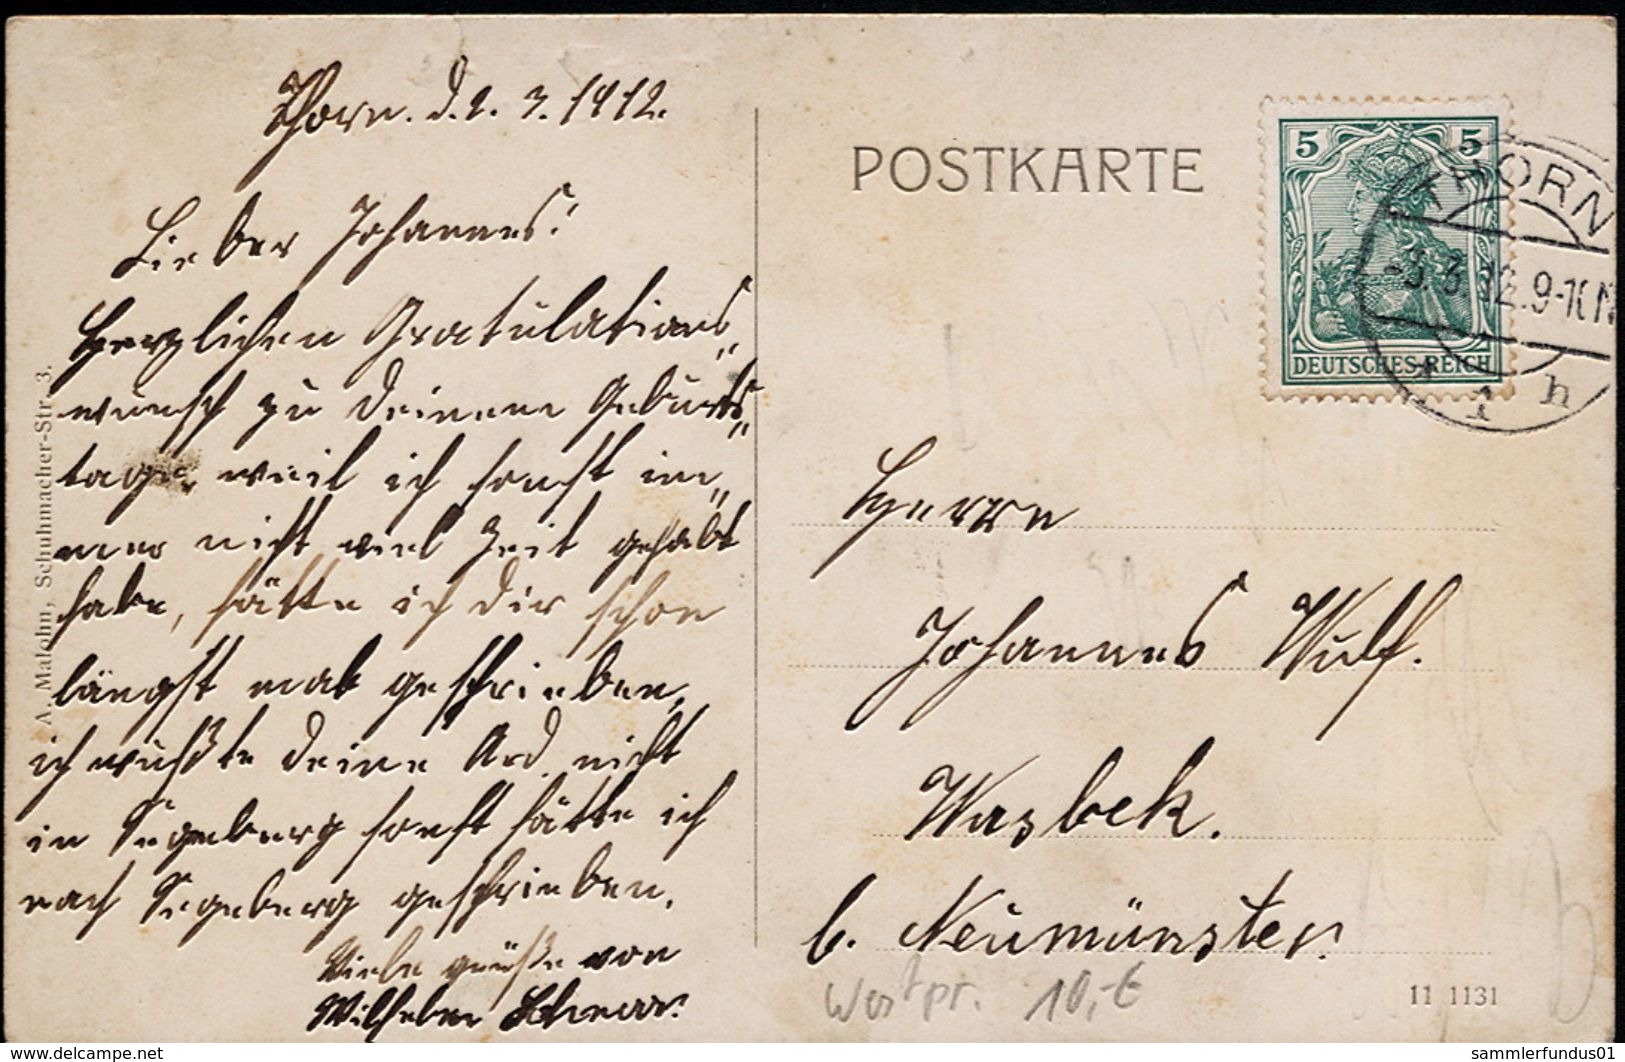 Thorn. d. 2. 3. 1912.
Lieber Johannes!
Herzlichen Gratulations„
wunsch zu Deinem Geburts„
tage, weil ich sonst im„
mer nicht viel Zeit gehabt
habe, hätte ich Dir schon
längst mal geschrieben,
ich wußte Deine Ard. nicht
in Segeberg sonst hätte ich
nach Segeberg geschrieben.
Viele grüße von
A. Malohn, Schuhmacher-Str. 3.
POSTKARTE
5 5
DEUTSCHES REICH
THORN
-3.3.12.9-10N
* 1 h
Herrn
Johannes Wulf.
Wasbek.
b. Neumünster.
Westpr. 10,-€
11 1131
delcampe.net
sammlerfundus01